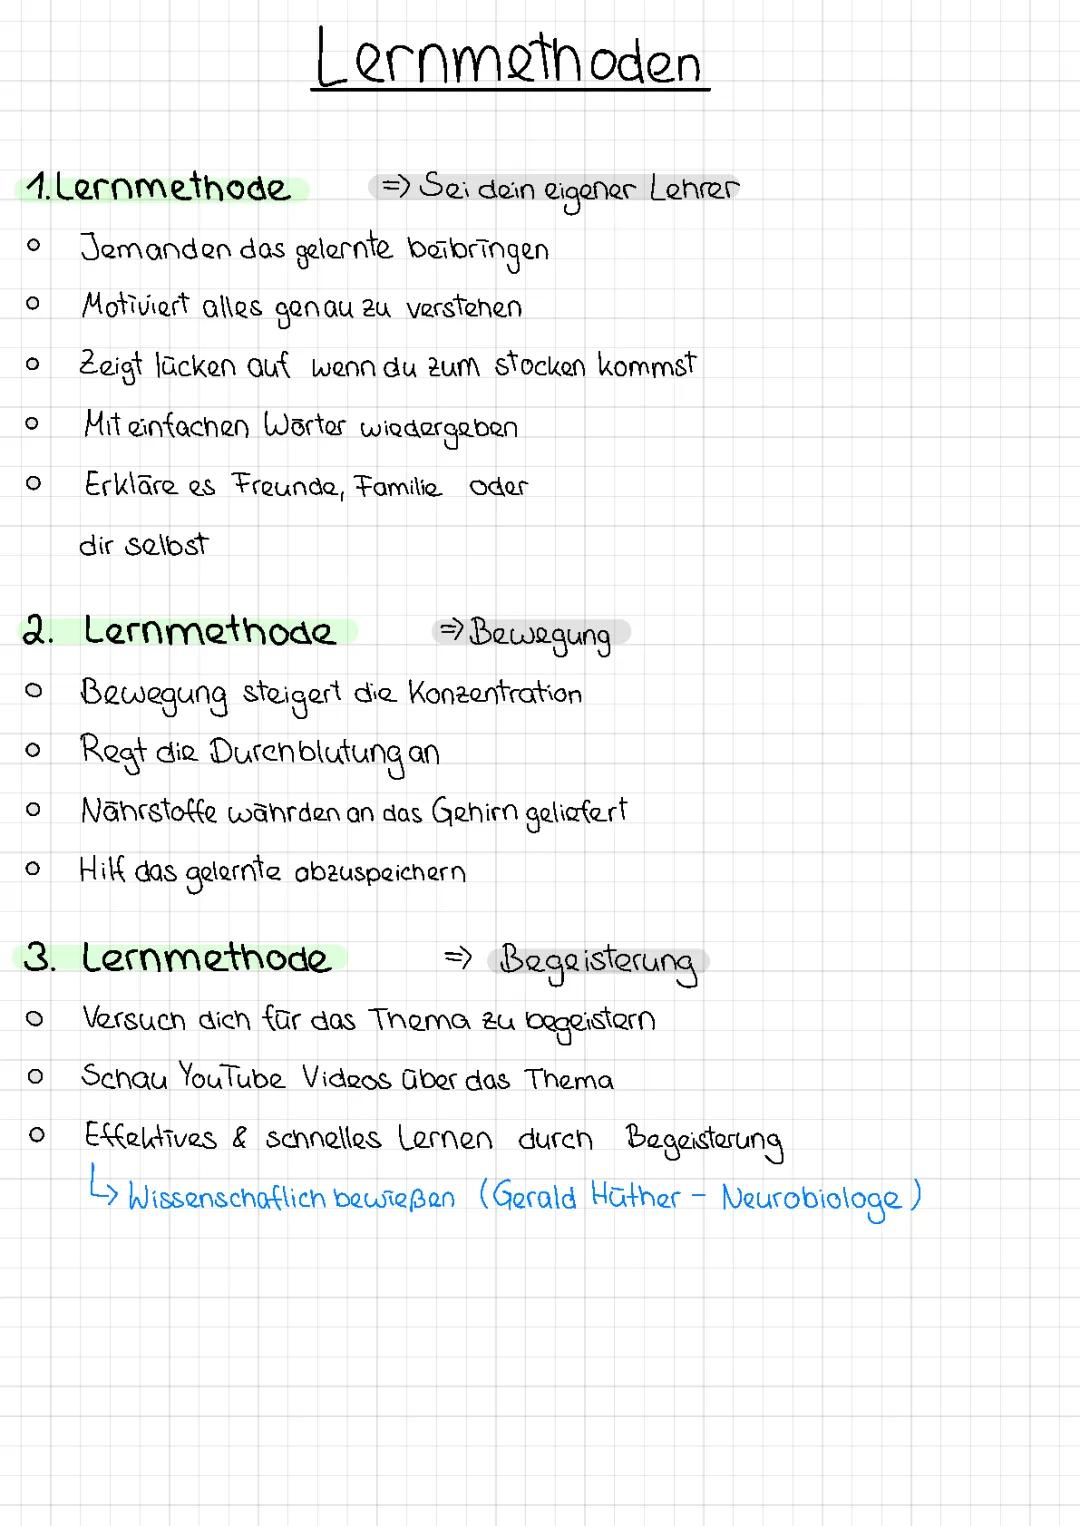 Lernmethoden
1. Lernmethode => Sei dein eigener Lehrer.
o Jemanden das gelernte beibringen
o Motiviert alles genau zu verstehen
o Zeigt lücken auf wenn du zum stocken kommst
o Mit einfachen Wörter wiedergeben
o Erkläre es Freunde, Familie oder
dir selbst
2. Lernmethode => Bewegung
o Bewegung steigert die Konzentration
o Regt die Durchblutung an
o Nährstoffe währden an das Gehirn geliefert
o Hilf das gelernte abzuspeichern
3. Lernmethode => Begeisterung
o Versuch dich für das Thema zu begeistern
o Schau YouTube Videos über das Thema
o Effektives & schnelles Lernen durch Begeisterung
↳ Wissenschaftlich bewießen (Gerald Hüther - Neurobiologe)